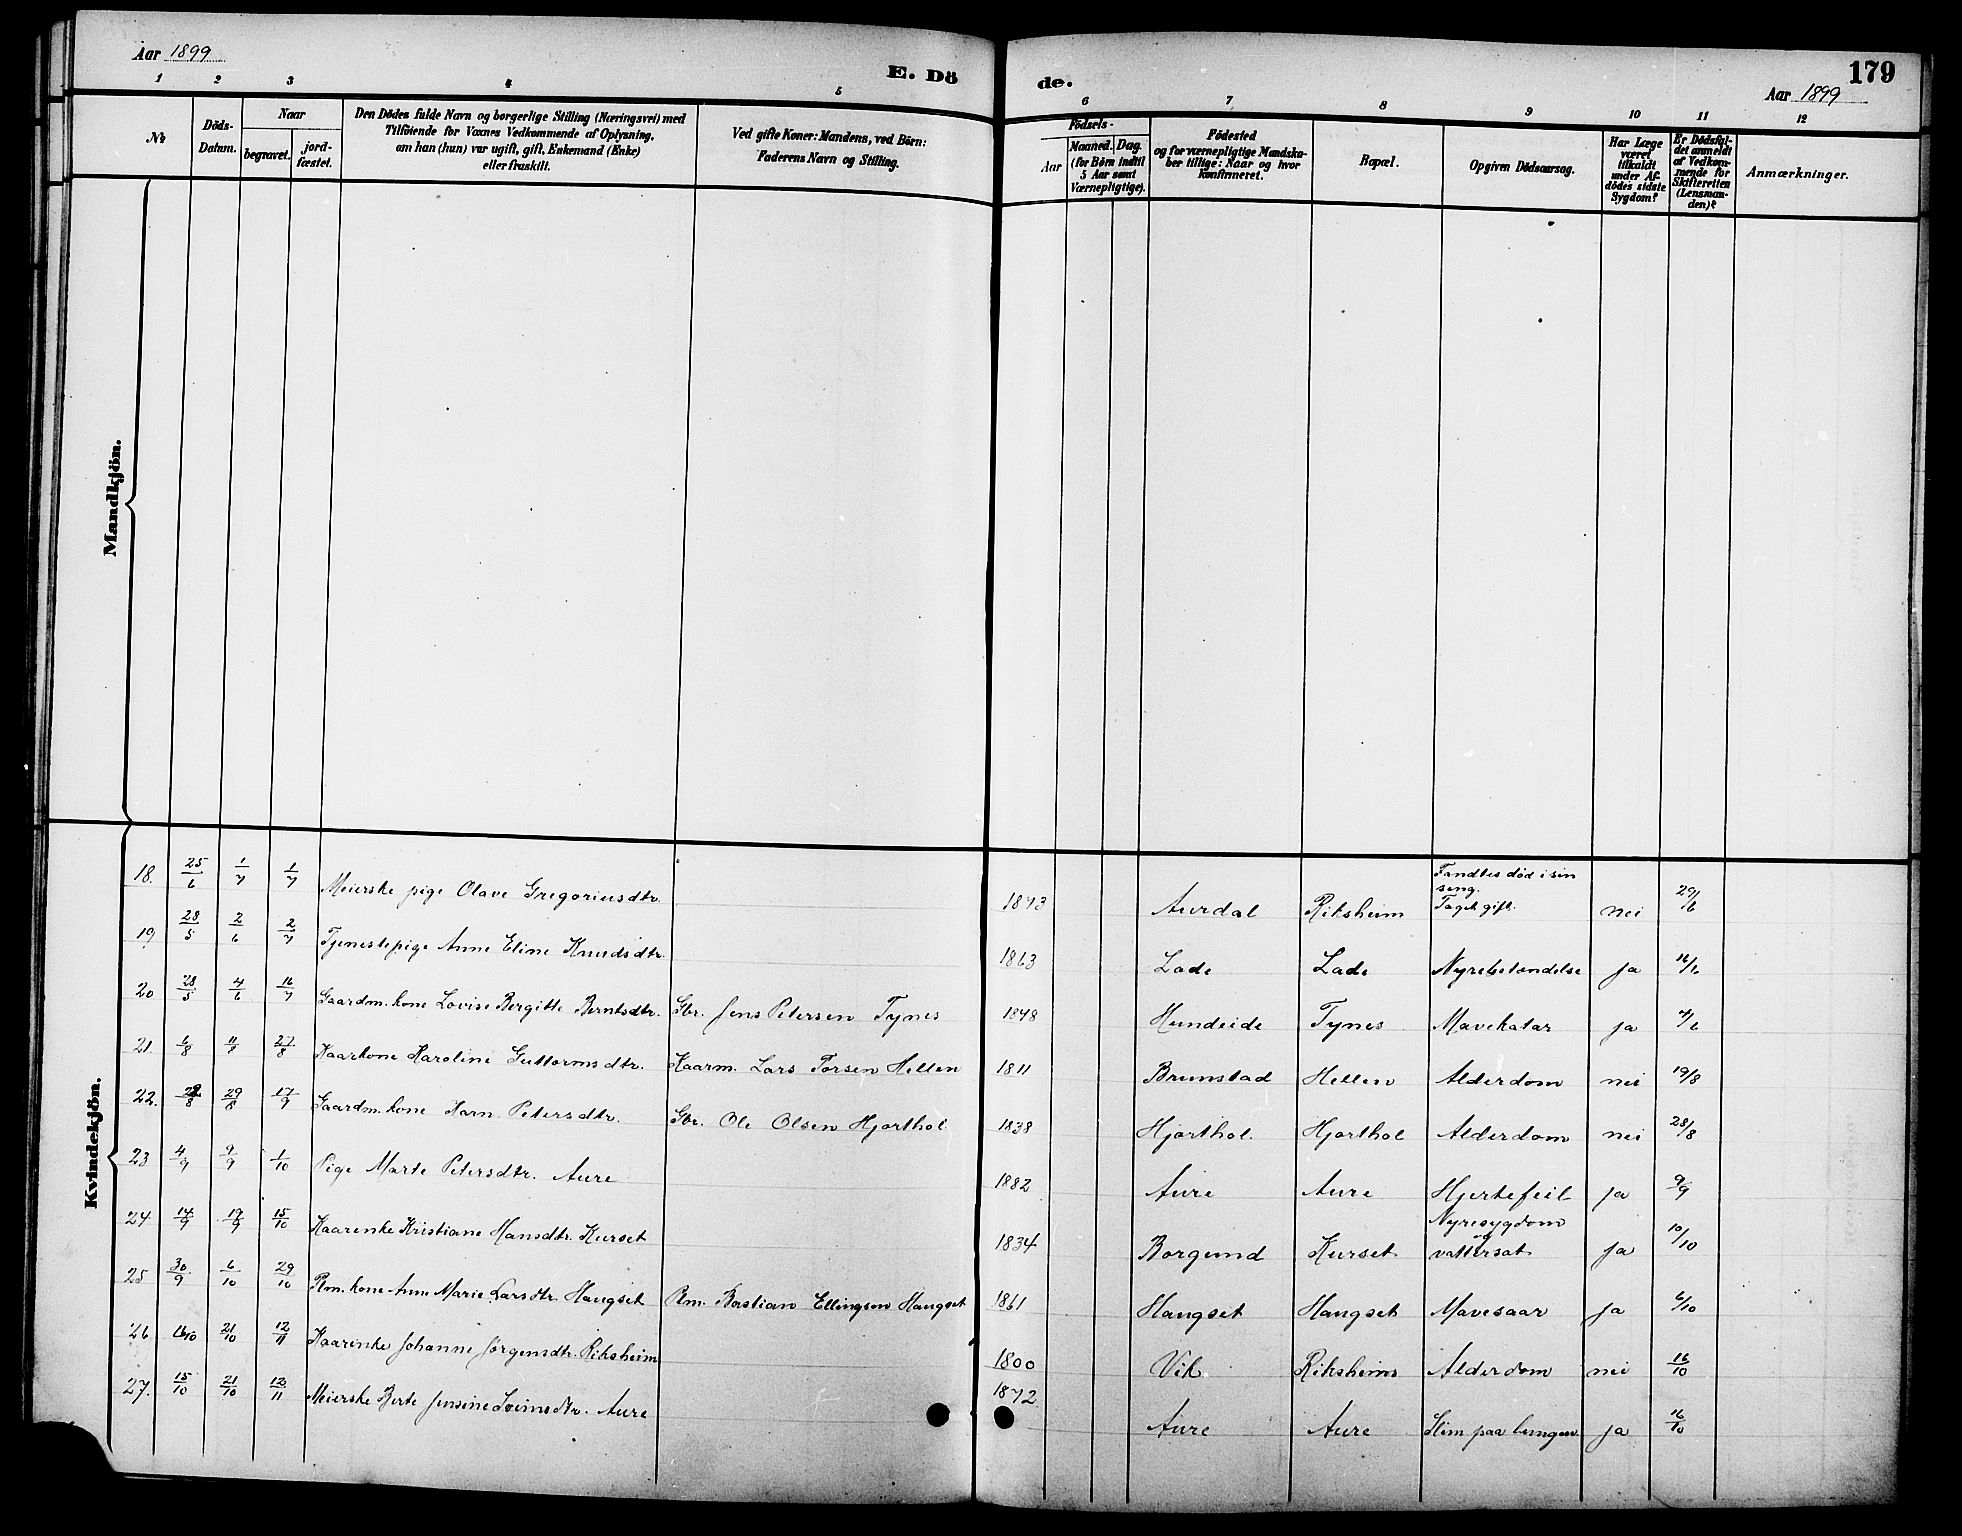 Aar 1899
E. Dö
de.
179
Aar 1899
1 2 3 4 5 6 7 8 9 10 11 12
No
Döds-
Datum.
Naar
begravet.
jord-
fæstet.
Den Dödes fulde Navn og borgerlige Stilling (Næringsvei) med
Tilföiende for Voxnes Vedkommende af Oplysning,
om han (hun) var ugift, gift, Enkemand (Enke)
eller fraskilt.
Ved gifte Koner: Mandens, ved Börn:
Faderens Navn og Stilling.
Födsels-
Aar
Maaned. Dag.
(for Börn indtil
5 Aar samt
Værnepligtige).
Födested
og for værnepligtige Mandska-
ber tillige: Naar og hvor
konfirmeret.
Bopæl.
Opgiven Dödsaarsag.
Har Læge
været
tilkaldt
under Af-
dödes sidste
Sygdom?
Er Dödsfal-
det anmeldt
af Vedkom-
mende for
Skifteretten
(Lensman-
den)?
Anmærkninger.
Mandkjön.
Kvindekjön.
18. 25/6 1/7 1/7 Meierske pige Olave Gregoriusdtr. 1873 Aurdal Riksheim Fandtes död i sin seng. Taget gift. nei 29/6
19 28/5 2/6 2/7 Tjenestepige Anne Eline Knudsdtr. 1863 Lade Lade Nyrebetændelse ja 16/6
20 28/5 4/6 16/7 Gaardm. kone Lovise Bergitte Berntsdtr. Gbr. Jens Petersen Tynes 1848 Hundeide Tynes Mavekatar ja 4/6
21. 6/8 11/8 27/8 Kaarkone Karoline Guttormsdtr. Kaarm. Lars Torsen Hellen 1811 Brunstad Hellen Alderdom nei 19/8
22. 29/8 17/9 Gaardm. kone Karn Petersdtr. Gbr. Ole Olsen Hjorthol 1838 Hjorthol. Hjorthol Alderdom nei 28/8
23 4/9 9/9 1/10 Pige Marte Petersdtr. Aure 1882 Aure Aure Hjertefeil ja 9/9
24 14/9 19/9 15/10 Kaarenke Kristiane Hansdtr. Kurset 1834 Borgund Kurset Nyresygdom og vattersot ja 10/10
25 30/9 6/10 29/10 Plm. kone Anne Marie Larsdtr. Haugset Plm. Bastian Ellingsen Haugset 1861 Haugset Haugset Mavesaar ja 6/10
26 21/10 12/11 Kaarenke Johanne Jørgensdtr. Riksheim 1800 Vik Riksheim Alderdom nei 16/10
27. 15/10 21/10 12/11 Meierske Berte Jensine Sveinsdtr. Aure 1872 Aure Aure Slim paa lungen ja 16/10